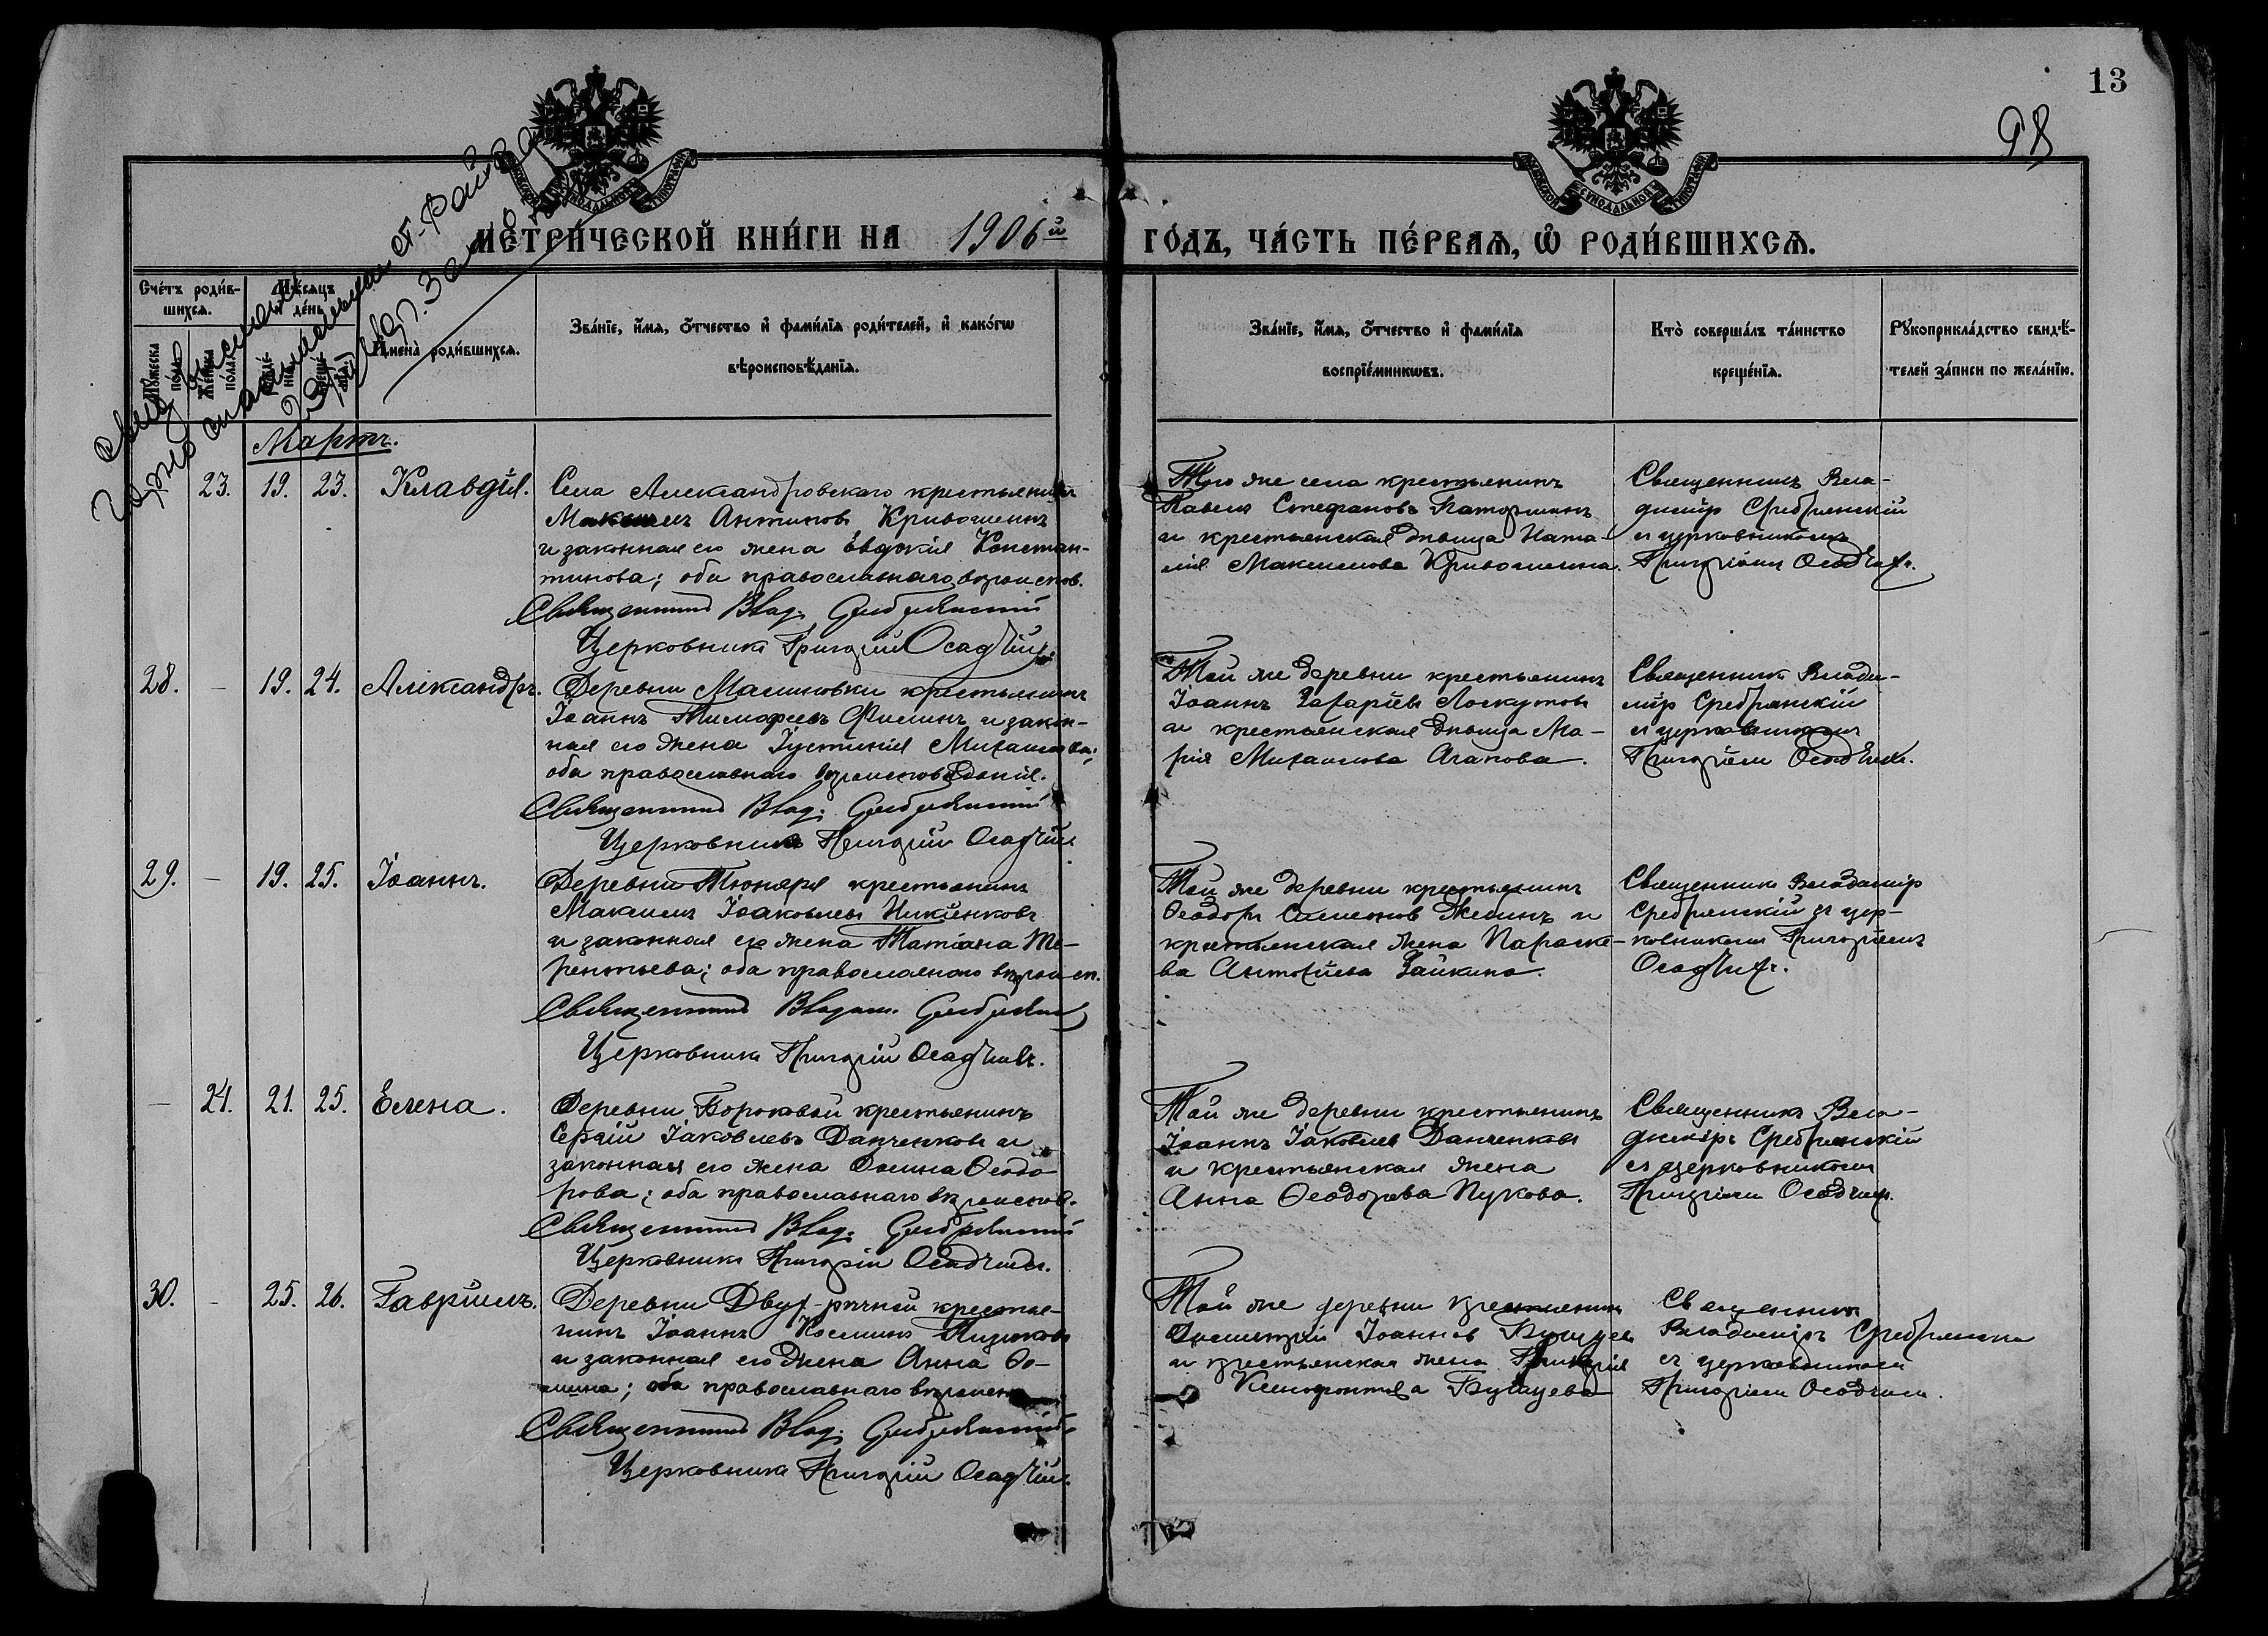 13
98
МЕТРИ́ЧЕСКОЙ КНИ́ГИ НА 1906й ГО́ДЪ, ЧА́СТЬ ПЕ́РВАЯ, Ѡ РОДИ́ВШИХСЯ.
Сче́тъ роди́в-
шихся.
Мѣ́сяцъ
и де́нь
Му́жеска по́ла.
Же́нска по́ла.
Имена̀ роди́вшихся.
Зва́нїе, и́мя, о́тчество и҆ фами́лїя роди́телей, и҆ како́гѡ
вѣроисповѣ́данїя.
Зва́нїе, и́мя, о́тчество и҆ фами́лїя
воспрїе́мникѡвъ.
Кто̀ соверша́лъ та́инство
креще́нїя.
Рꙋкоприкла́дство свидѣ́-
телей за́писи по жела́нїю.
Мартъ.
23. 19. 23. Клавдія.
Села Александровскаго крестьянинъ
Максимъ Антиповъ Кривошеинъ
и законная его жена Евдокія Констан-
тинова; оба православнаго вѣроиспов.
Священникъ Влад. Сребрянскій
Церковникъ Григорій Осадчій.
Того же села крестьянинъ
Павелъ Стефановъ
и крестьянская дѣвица Ната-
лія Максимова Кривошеина.
Священникъ Вла-
диміръ Сребрянскій
съ церковникомъ
Григоріемъ Осадчимъ.
28. — 19. 24. Александръ.
Деревни Малиновки крестьянинъ
Іоаннъ Тимофеевъ Филинъ и закон-
ная его жена Іустинія Михаилова;
оба православнаго вѣроисповѣданія.
Священникъ Влад. Сребрянскій
Церковникъ Григорій Осадчій
Той же деревни крестьянинъ
Іоаннъ Захаріевъ Лоскутовъ
и крестьянская дѣвица Ма-
рія Михаилова Агапова.
Священникъ Влади-
міръ Сребрянскій
съ церковникомъ
Григоріемъ Осадчимъ.
29. — 19. 25. Іоаннъ.
Деревни Тюняря крестьянинъ
Максимъ Іаковлевъ Никіенковъ
и законная его жена Татіана Те-
рентьева; оба православнаго вѣроисп.
Священникъ Владим. Сребрянскій
Церковникъ Григорій Осадчій.
Той же деревни крестьянинъ
Ѳеодоръ Симеоновъ и
крестьянская жена Параске-
ва Антоніева Зайкина.
Священникъ Владиміръ
Сребрянскій съ цер-
ковникомъ Григоріемъ
Осадчимъ.
— 24. 21. 25. Елена.
Деревни Бороковой крестьянинъ
Сергій Іаковлевъ Данченковъ и
законная его жена Ѳеодо-
рова; оба православнаго вѣроиспов.
Священникъ Влад. Сребрянскій
Церковникъ Григорій Осадчій.
Той же деревни крестьянинъ
Іоаннъ Іаковлевъ Данченковъ
и крестьянская жена
Анна Ѳеодорова Пукова.
Священникъ Вла-
диміръ Сребрянскій
съ церковникомъ
Григоріемъ Осадчимъ.
30. — 25. 26. Гавріилъ.
Деревни Двух-рѣчной крестья-
нинъ Іоаннъ Косминъ
и законная его жена Анна Ѳо-
мина; оба православнаго вѣроисп.
Священникъ Влад. Сребрянскій
Церковникъ Григорій Осадчій.
Той же деревни крестьянинъ
Димитрій Іоанновъ Бушуевъ
и крестьянская жена
Ксенофонтова Бушуева
Священникъ
Владиміръ Сребрянскій
съ церковникомъ
Григоріемъ Осадчимъ.